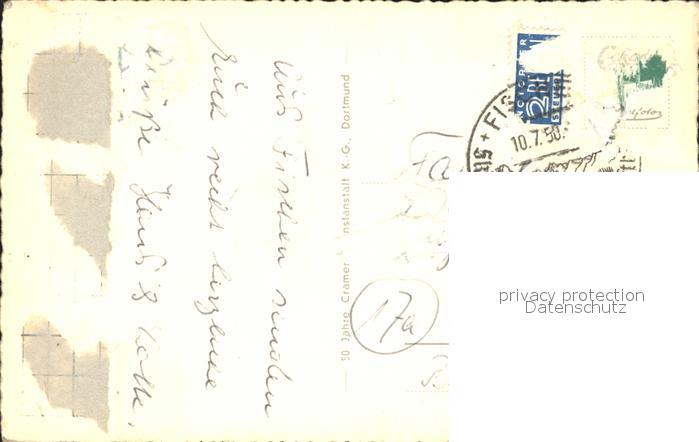 Aus Fischen senden
Euch recht herzliche
Grüße Heinz & Lotte.
50 Jahre Cramers Kunstanstalt K.-G., Dortmund
NOTOPFER
2
BERLIN
STEUERMARKE
+ FIS
10.7.50.
Fa
17a
privacy protection
Datenschutz